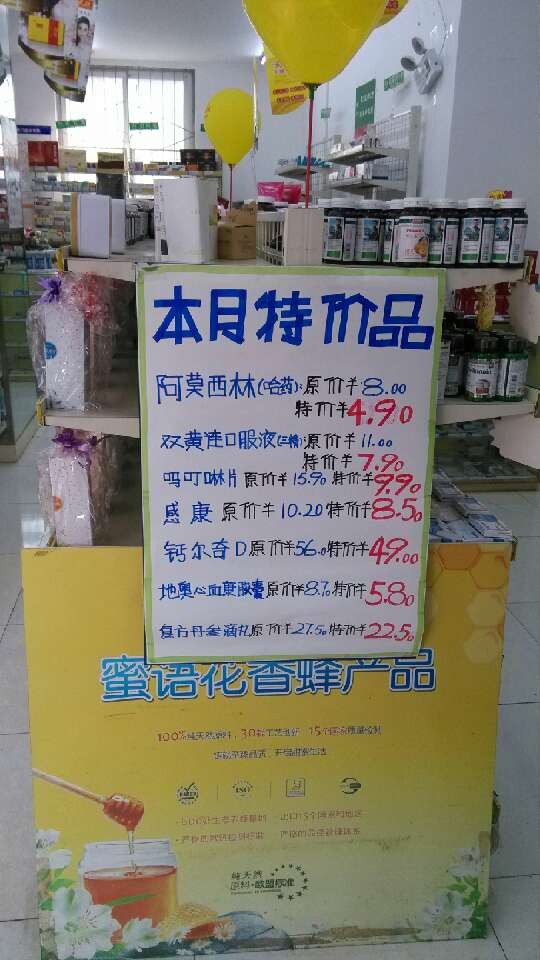 本月特价品
阿莫西林(哈药):原价¥8.00
特价¥4.90
双黄连口服液(三精):原价¥11.00
特价¥7.90
吗叮啉片原价¥15.90特价¥9.90
感康原价¥10.20特价¥8.50
钙尔奇D原价¥56.0特价¥49.00
地奥心血康胶囊原价¥8.70特价¥5.80
复方丹参滴丸原价¥27.50特价¥22.50
蜜语花香蜂产品
ISO
纯天然
原料·欧盟标准